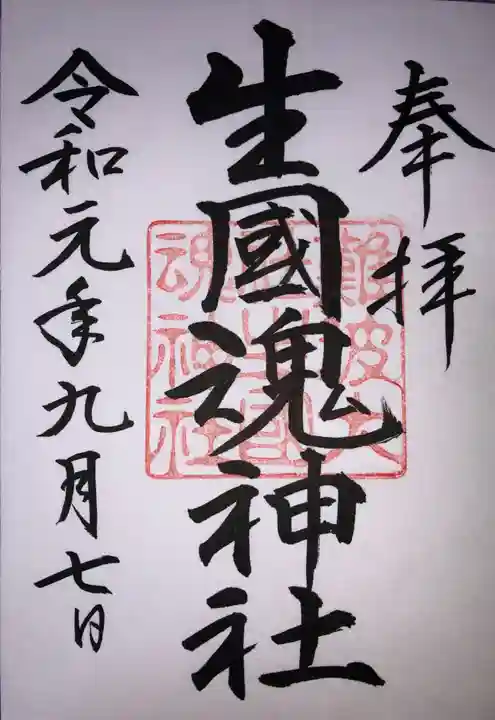 奉拝
生國魂神社
令和元年九月七日